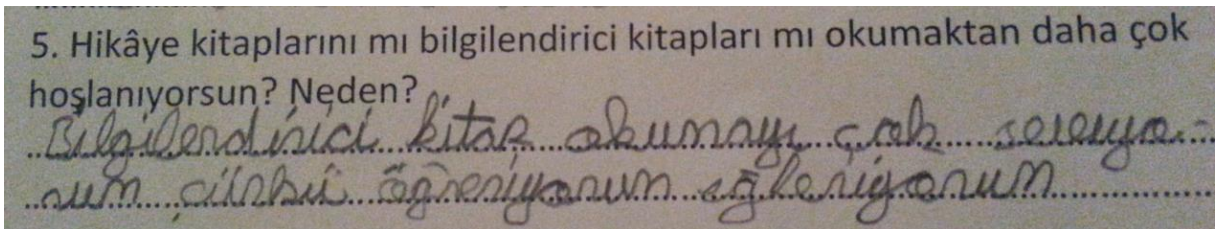 5. Hikâye kitaplarını mı bilgilendirici kitapları mı okumaktan daha çok
hoşlanıyorsun? Neden?
Bilgilendirici kitap okumayı çok seviyo-
rum çünkü öğreniyorum eğleniyorum